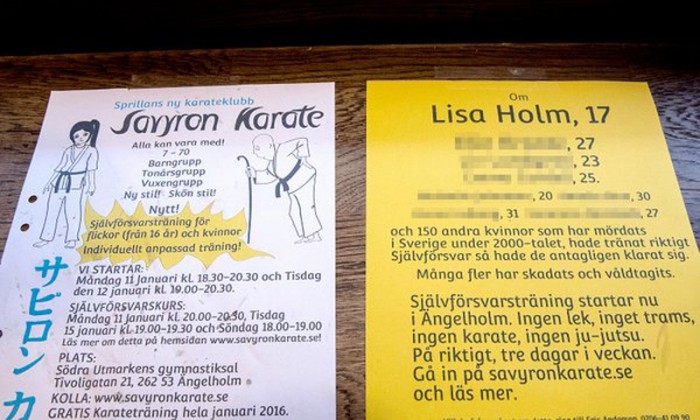 Sprillans ny karateklubb
Savyron Karate
Alla kan vara med!
7 - 70
Barngrupp
Tonårsgrupp
Vuxengrupp
Ny stil! Skön stil!
Nytt!
Självförsvarsträning för
flickor (från 16 år) och kvinnor
Individuellt anpassad träning!
サビロン カ
VI STARTAR:
Måndag 11 Januari kl 18.30-20.30 och Tisdag
den 12 januari kl 19.00-20.30.
SJÄLVFÖRSVARSKURS:
Måndag 11 Januari kl. 20.00-20.30, Tisdag
15 januari kl 19.00-19.30 och Söndag 18.00-19.00
Läs mer om detta på hemsidan www.savyronkarate.se!
PLATS:
Södra Utmarkens gymnastiksal
Tivoligatan 21, 262 53 Ängelholm
KOLLA: www.savyronkarate.se
GRATIS Karateträning hela januari 2016.
Om
Lisa Holm, 17
, 27
, 23
, 25.
, 20
, 30
, 31
, 27
och 150 andra kvinnor som har mördats
i Sverige under 2000-talet, hade tränat riktigt
Självförsvar så hade de antagligen klarat sig.
Många fler har skadats och våldtagits.
Självförsvarsträning startar nu
i Ängelholm. Ingen lek, inget trams,
ingen karate, ingen ju-jutsu.
På riktigt, tre dagar i veckan.
Gå in på savyronkarate.se
och läs mer.